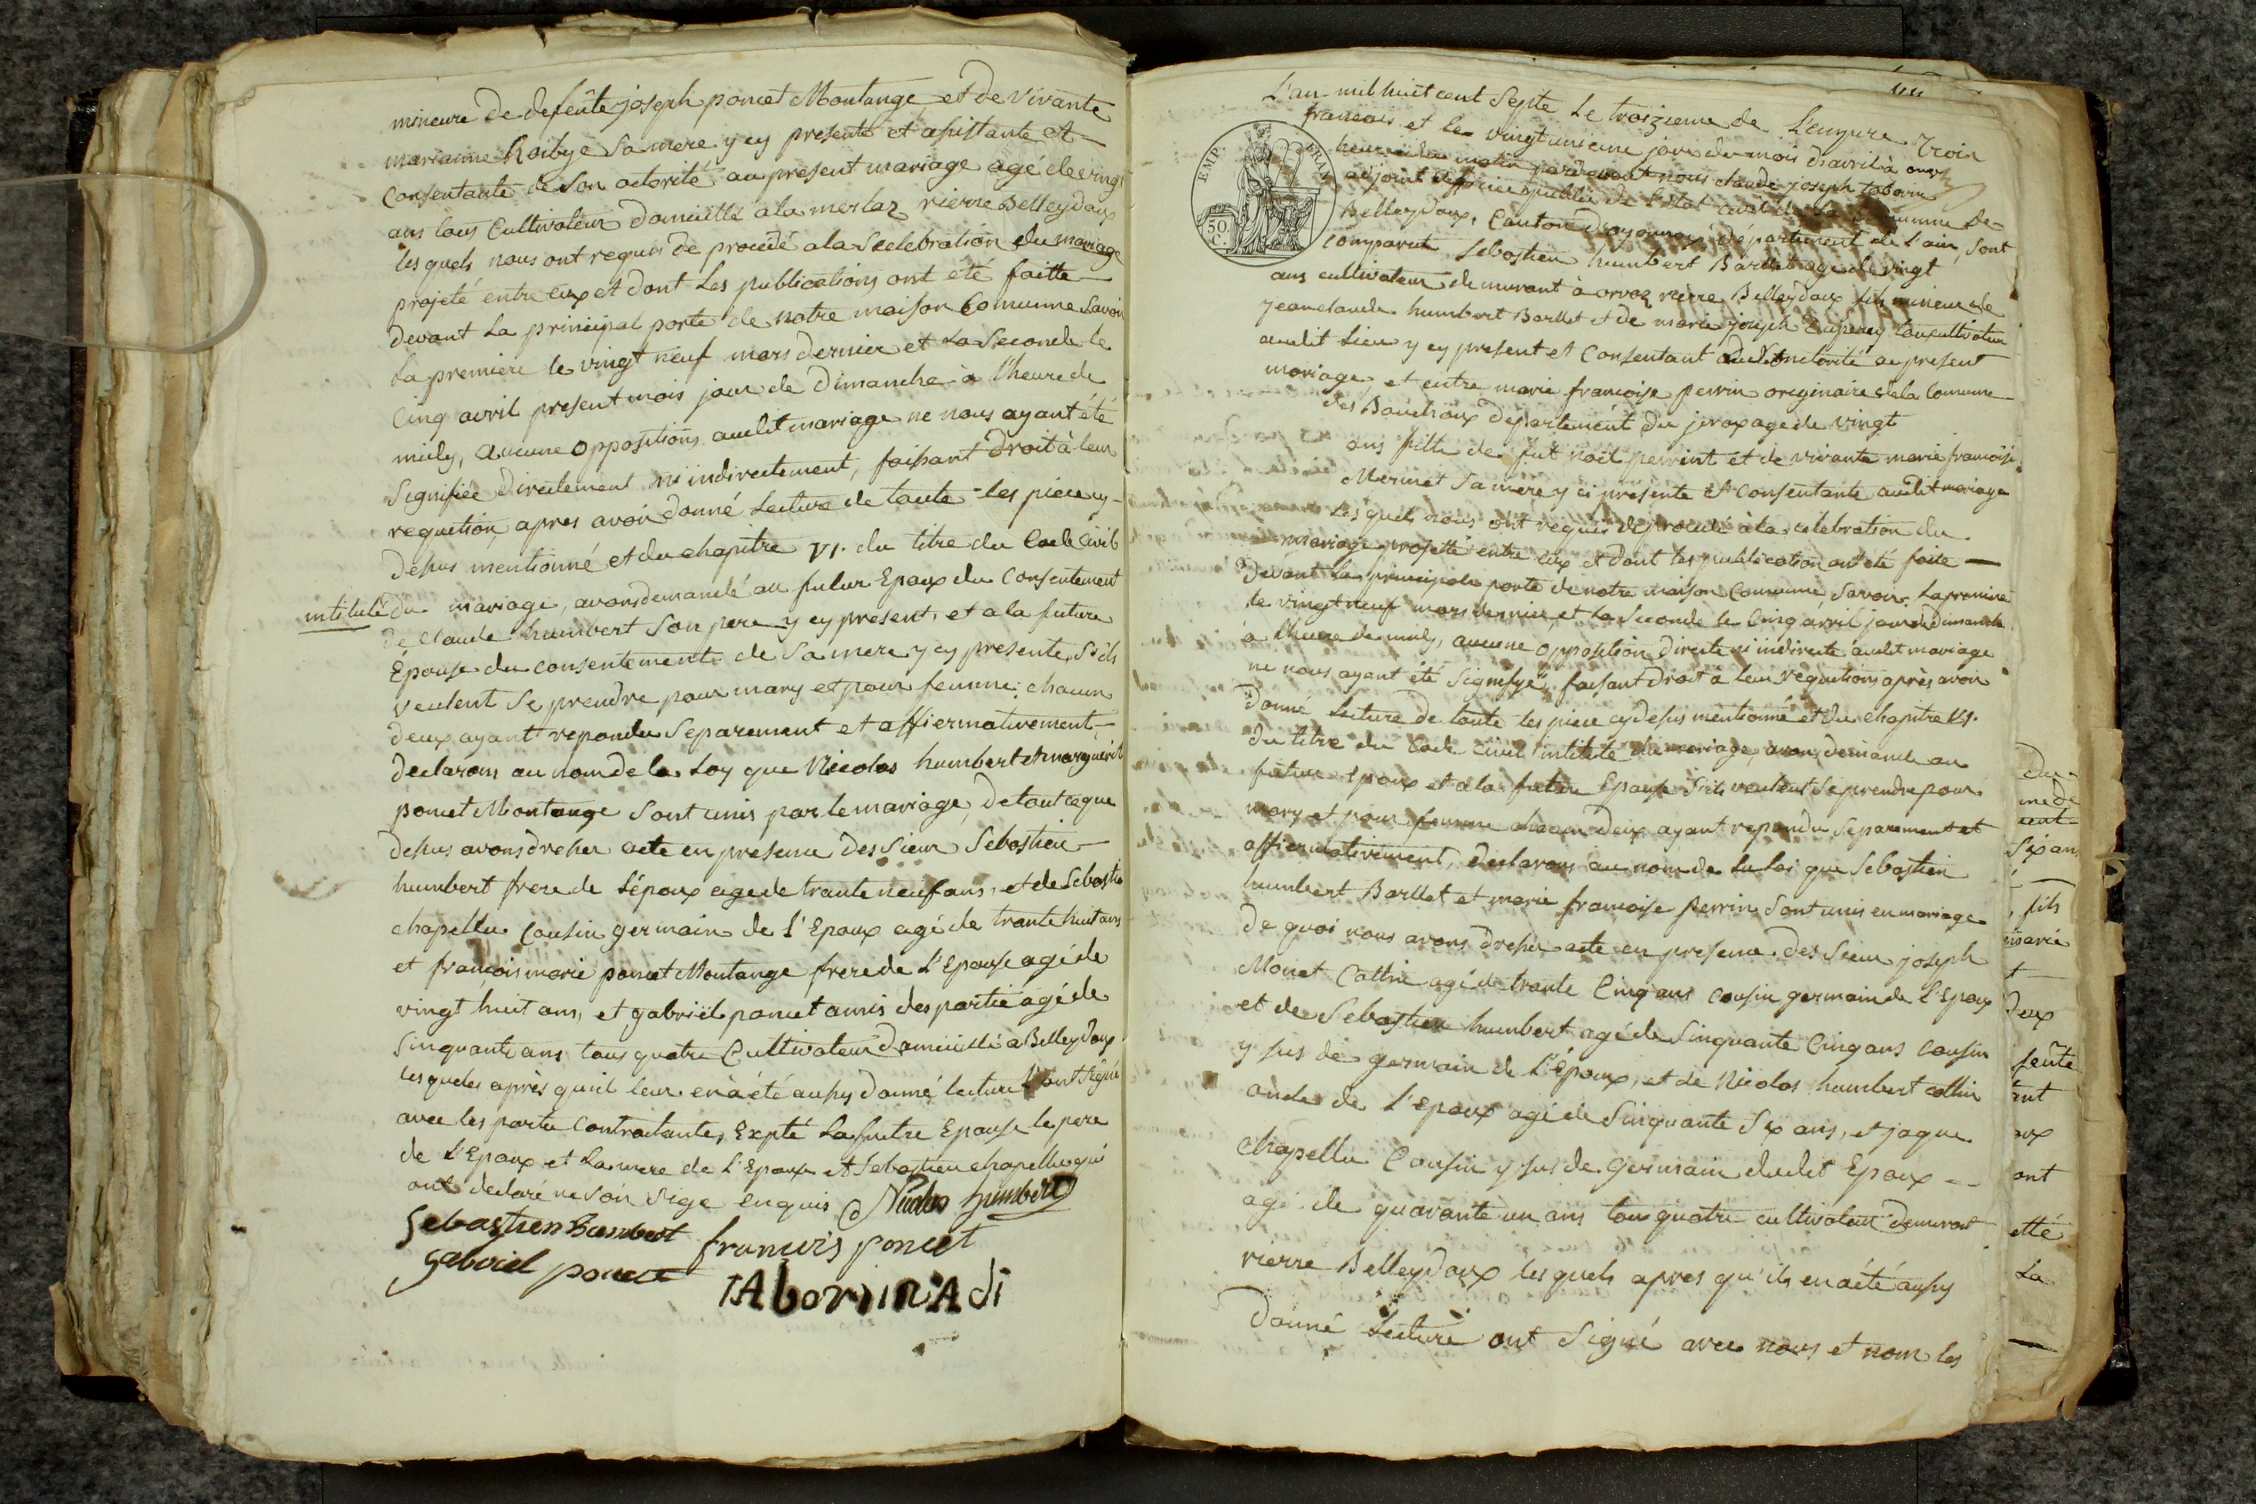 mineure de defeûte joseph poncet Montange et de vivante
marianne Roibye Sa mere y cy presente et assistante et
consentante de son actorité au present mariage agé de vingt
ans tous Cultivateur domicillé a la merlaz rierre Belleydoux
les quels nous ont requis de procedé a la Scelebration du mariage
projeté entre eux et dont Les publications ont été faitte
devant La principal porte de notre maison Comunne Savoir
La premiere le vingt neuf mars dernier et La Seconde le
Cinq avril present mois jour de Dimanche à l'heure de
midy, aucune oppositions audit mariage ne nous ayant été
Signifiée directement ni indirectement, faisant Droit à leur
requetion apres avoir donné Lecture de toute les piece cy
desus mentionné et du chapitre VI. du titre du Code Civil
intitulé du mariage, avons demandé au futur Epoux du Consentement
de claude humbert Son pere y cy present, et a la future
Épouse du consentement de Sa mere y cy presente, S'ils
veulent Se prendre pour mary et pour femme; chacun
deux ayant repondu Separement et affiermativement
declarons au nom de la Loy que Nicolas humbert et marguerit
poncet Montange Sont unis par le mariage, de tout ce que
desus avons dresser acte en presence des Sieur Sebastien
humbert frere de L'époux age de trante neuf ans, et de Sebastie
chapellu Cousin germain de l'Epoux agé de trante huit ans
et françois marie poncet Montange frere de L'Epouse agé de
vingt huit ans, et gabriel poncet amis des partie agé de
Sinquante ans tous quatre Cultivateur domicillié a Belleydoux
les queles après qu'il leur en à été aussy donné lecture L'ont Signé
avec les partie Contractante, Expté La futre Epouse le pere
de L'Epoux et La mere de L'Epouse et Sebastien chapellu qui
ont declaré ne Savoir Sige enquis Nicolas humbert
Sebastien humbert françois poncet
gabriel poncet
TAborin Adi
L'an mil huit cent Septe Le troizieme de L'empire
francais et le vingt unieme jour du mois d'avril à onze
heures du matin pardevant nous claude joseph Taborin
adjoint officier public de l'Etat civil de la Commune de
Belleydoux, Canton d'oyonnax Département de L'ain, Sont
comparut Sebastien humbert Barllet age de vingt
ans cultivateur demurant à orvaz rierre Belleydoux fils mineur de
jean claude humbert Barllet et de marie joseph tous cultivateur
audit Lieu y cy present et Consentant au present
mariage, et entre marie françoise perrin originaire de la Comune
des Bouchoux département du jeraxage de vingt
ans fille de fut noël perrint et de vivante marie françoise
Mermet Sa mere y ci presente et Consentante audit mariage
Les quels nous ont requis de procedé à la celebration du
mariage projetté entre eux et dont les publication ont été faite
Devant La principale porte de notre maison Commune, Savoir La premiere
le vingt neuf mars dernier, et La Seconde le Cinq avril jour de dimanche
à l'heure de midy, aucune opposition directe ni indirecte audit mariage
ne nous ayant été Signifyé, faisant Droit à leur requetions après avoir
Donné Lecture de toute les piece cy desus mentionné et du chapitre VI.
du titre du Code Civil intitulé du mariage, avons demandé au
futur Epoux et à la future Epouse S'ils veulent Se prendre pour
mary et pour femme chacun deux ayant repondu Separement et
affiermativement, declarons au nom de La Loi que Sebastien
humbert Barllet et marie francoise perrin Sont unis en mariage
De quoi nous avons dresser acte en presence des Sieur joseph
Monet Cattin agé de trante Cinq ans cousin germain de l'Epoux
et de Sebastien humbert agé de Sinquante Cinq ans cousin
y sus de germain de L'Epoux, et de Nicolas humbert cattin
oncle de l'epoux agé de Sinquante Six ans, et jaque
chapellu Cousin y sus de germain dudit Epoux
agé de quarante un ans tous quatre cultivateur demurant
rierre Belleydoux les quels apres qu'ils en à été aussy
Donné Lecture ont Signé avec nous et nom les